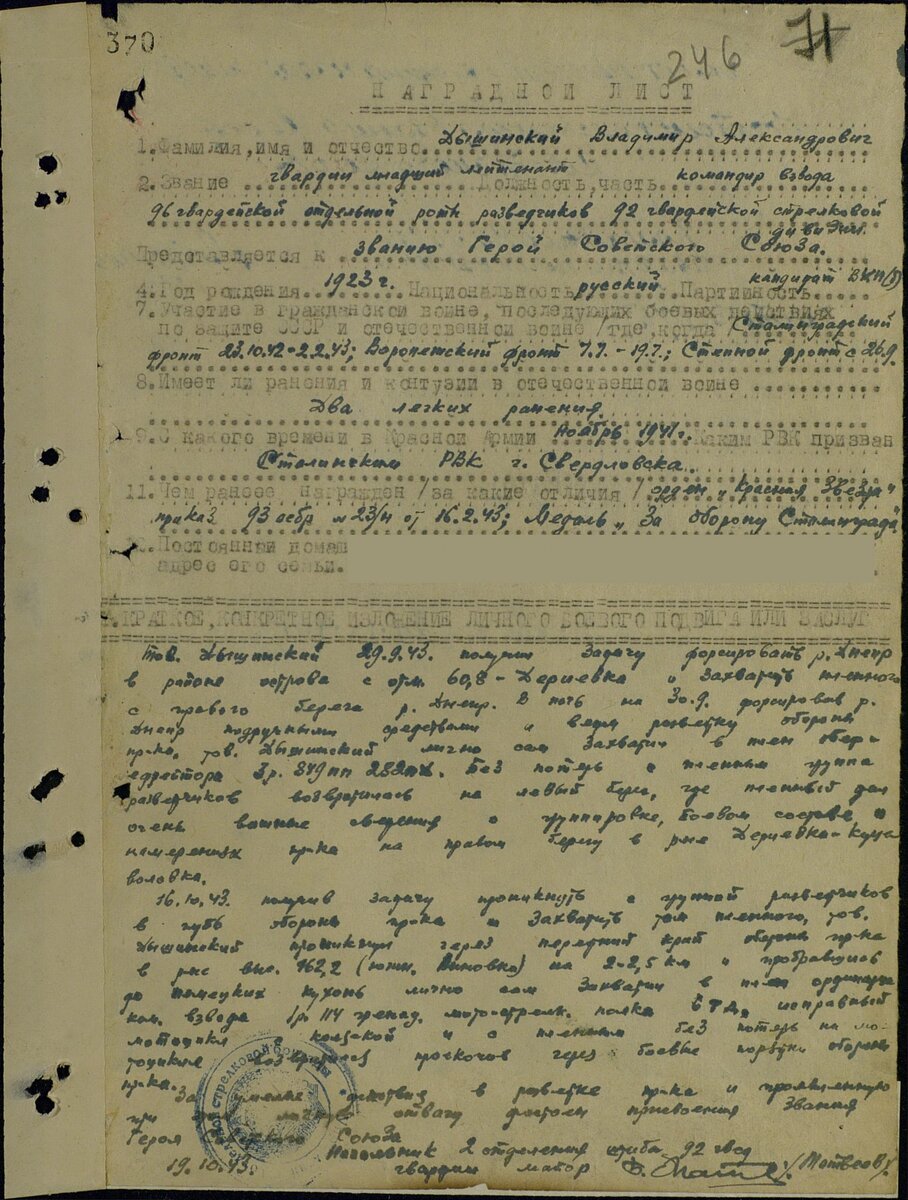 370
246
НАГРАДНОЙ ЛИСТ
1. Фамилия, имя и отчество Дышинский Владимир Александрович
2. Звание гвардии младший лейтенант Должность, часть командир взвода
96 гвардейской отдельной роты разведчиков 92 гвардейской стрелковой
дивизии.
Представляется к званию Герой Советского Союза.
4. Год рождения 1923 г. Национальность русский Партийность кандидат ВКП(б)
7. Участие в гражданской войне, последующих боевых действиях
по защите СССР и отечественной войне /где, когда/ Сталинградский
фронт 23.10.42-2.2.43; Воронежский фронт 7.7.-19.7.; Степной фронт с
8. Имеет ли ранения и контузии в отечественной войне
Два легких ранения.
9. С какого времени в Красной Армии Ноябрь 1941 г. Каким РВК призван
Сталинским РВК г. Свердловска.
11. Чем ранее награжден /за какие отличия/ орден „Красная Звезда"
приказ 93 осбр № 23/н от 16.2.43; Медаль „За оборону Сталинграда"
Постоянный домаш
адрес его семьи.
КРАТКОЕ, КОНКРЕТНОЕ ИЗЛОЖЕНИЕ ЛИЧНОГО БОЕВОГО ПОДВИГА ИЛИ ЗАСЛУГ
Тов. Дышинский 29.9.43. получил задачу форсировать р. Днепр
в районе острова с отм. 60,8 - Дериевка и захватить пленного
с правого берега р. Днепр. В ночь на 30.9. форсировав р.
Днепр подручными средствами и ведя разведку обороны
пр-ка, тов. Дышинский лично сам захватил в плен обер-
ефрейтора 3р. 849 пп 282 пд. Без потерь с пленным группа
разведчиков возвратилась на левый берег, где пленный дал
очень важные сведения о группировке, боевом составе и
намерениях пр-ка на правом берегу в р-не Дериевка-Куце
воловка.
16.10.43. получив задачу проникнуть с группой разведчиков
в глубь обороны пр-ка и захватить там пленного, тов.
Дышинский проникнув через передний край обороны пр-ка
в р-не выс. 162,2 (южн. ) на 2-2,5 км и пробравшись
до немецких кухонь лично сам захватил в плен ординарца
ком. взвода 1р. 114 гренад. мото-стрелк. полка 6 тд, исправный
мотоцикл с коляской и с пленным без потерь на мо-
тоцикле возвратился проскочив через боевые порядки обороны
пр-ка.
За умелые действия в разведке пр-ка и проявленную
при этом личную отвагу достоин присвоения звания
Героя Советского Союза
Начальник 2 отделения штаба 92 гвсд
19.10.43 гвардии майор /Матвеев/